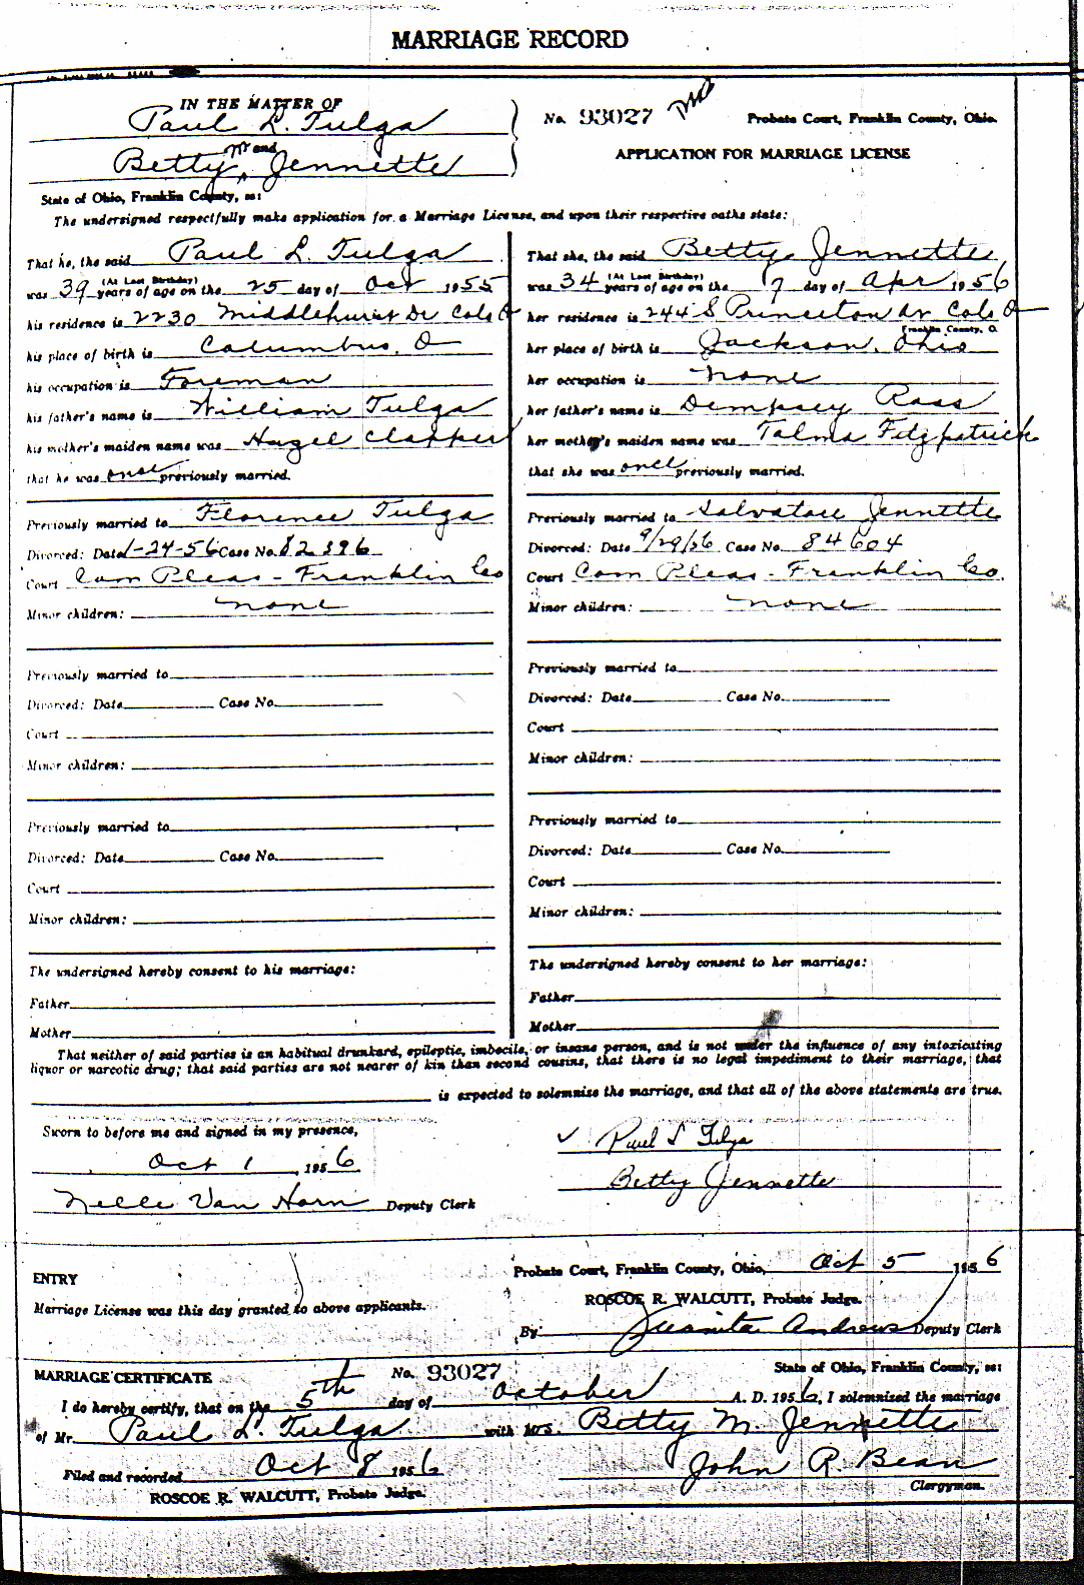 MARRIAGE RECORD
IN THE MATTER OF
Paul L. Tulga
No. 93027
Probate Court, Franklin County, Ohio.
and
M
Betty Jennette
APPLICATION FOR MARRIAGE LICENSE
State of Ohio, Franklin County, ss:
The undersigned respectfully make application for a Marriage License, and upon their respective oaths state:
That he, the said Paul L. Tulga
was 39 (At Last Birthday) years of age on the 25 day of Oct 1955
his residence is 2230 Middlehurst Dr Cols O
his place of birth is Columbus, O
his occupation is Foreman
his father's name is William Tulga
his mother's maiden name was Hazel Clapper
that he was once previously married.
Previously married to Florence Tulga
Divorced: Date 1-24-56 Case No. 82396
Court Com Pleas - Franklin Co
Minor children: none
Previously married to
Divorced: Date Case No.
Court
Minor children:
Previously married to
Divorced: Date Case No.
Court
Minor children:
The undersigned hereby consent to his marriage:
Father
Mother
That she, the said Betty Jennette
was 34 (At Last Birthday) years of age on the 7 day of Apr 1956
her residence is 244 S Princeton Av Cols O
Franklin County, O.
her place of birth is Jackson, Ohio
her occupation is none
her father's name is Dempsey Ross
her mother's maiden name was Talma Fitzpatrick
that she was once previously married.
Previously married to Salvatore Jennette
Divorced: Date 9/29/56 Case No. 84604
Court Com Pleas - Franklin Co.
Minor children: none
Previously married to
Divorced: Date Case No.
Court
Minor children:
Previously married to
Divorced: Date Case No.
Court
Minor children:
The undersigned hereby consent to her marriage:
Father
Mother
That neither of said parties is an habitual drunkard, epileptic, imbecile, or insane person, and is not under the influence of any intoxicating
liquor or narcotic drug; that said parties are not nearer of kin than second cousins, that there is no legal impediment to their marriage, that
is expected to solemnize the marriage, and that all of the above statements are true.
Sworn to before me and signed in my presence,
Oct 1, 1956
Nelle Van Horn Deputy Clerk
✓ Paul L Tulga
Betty Jennette
Probate Court, Franklin County, Ohio, Oct 5 1956
ENTRY
Marriage License was this day granted to above applicants.
ROSCOE R. WALCUTT, Probate Judge.
By Juanita Andrews Deputy Clerk
MARRIAGE CERTIFICATE No. 93027 State of Ohio, Franklin County, ss:
I do hereby certify, that on the 5th day of October A. D. 1956, I solemnized the marriage
of Mr. Paul L. Tulga with Mrs. Betty M. Jennette
Filed and recorded Oct 8 1956
John R. Bean
Clergyman.
ROSCOE R. WALCUTT, Probate Judge.